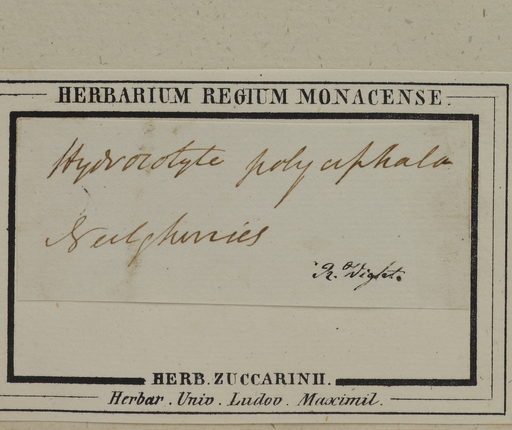 HERBARIUM REGIUM MONACENSE.
Hydrocotyle polycephala
Neelgherries
R. Wight.
HERB. ZUCCARINII.
Herbar. Univ. Ludov. Maximil.